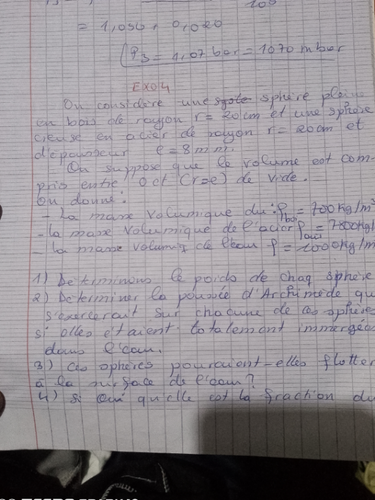 = 1,050 + 0,020
P3 = 1,07 bar = 1070 mbar
EXO4
On considère une sphère pleine
en bois de rayon r = 20cm et une sphère
creuse en acier de rayon r = 20cm et
d'épaisseur e = 8mm.
On suppose que le volume est com-
pris entre 0 et (r-e) de vide.
On donne:
- La masse volumique du: ρbois = 700kg/m³
- la masse volumique de l'acier ρaci = 7800kg/m
- la masse volumiq de l'eau ρ = 1000kg/m
1) Determinons le poids de chaq sphère
2) Determiner la poussée d'Archimède qui
s'exercerait sur chacune de ces sphères
si elles étaient totalement immergées
dans l'eau.
3) Ces sphères pourraient-elles flotter
à la surface de l'eau?
4) si oui qu'elle est la fraction du